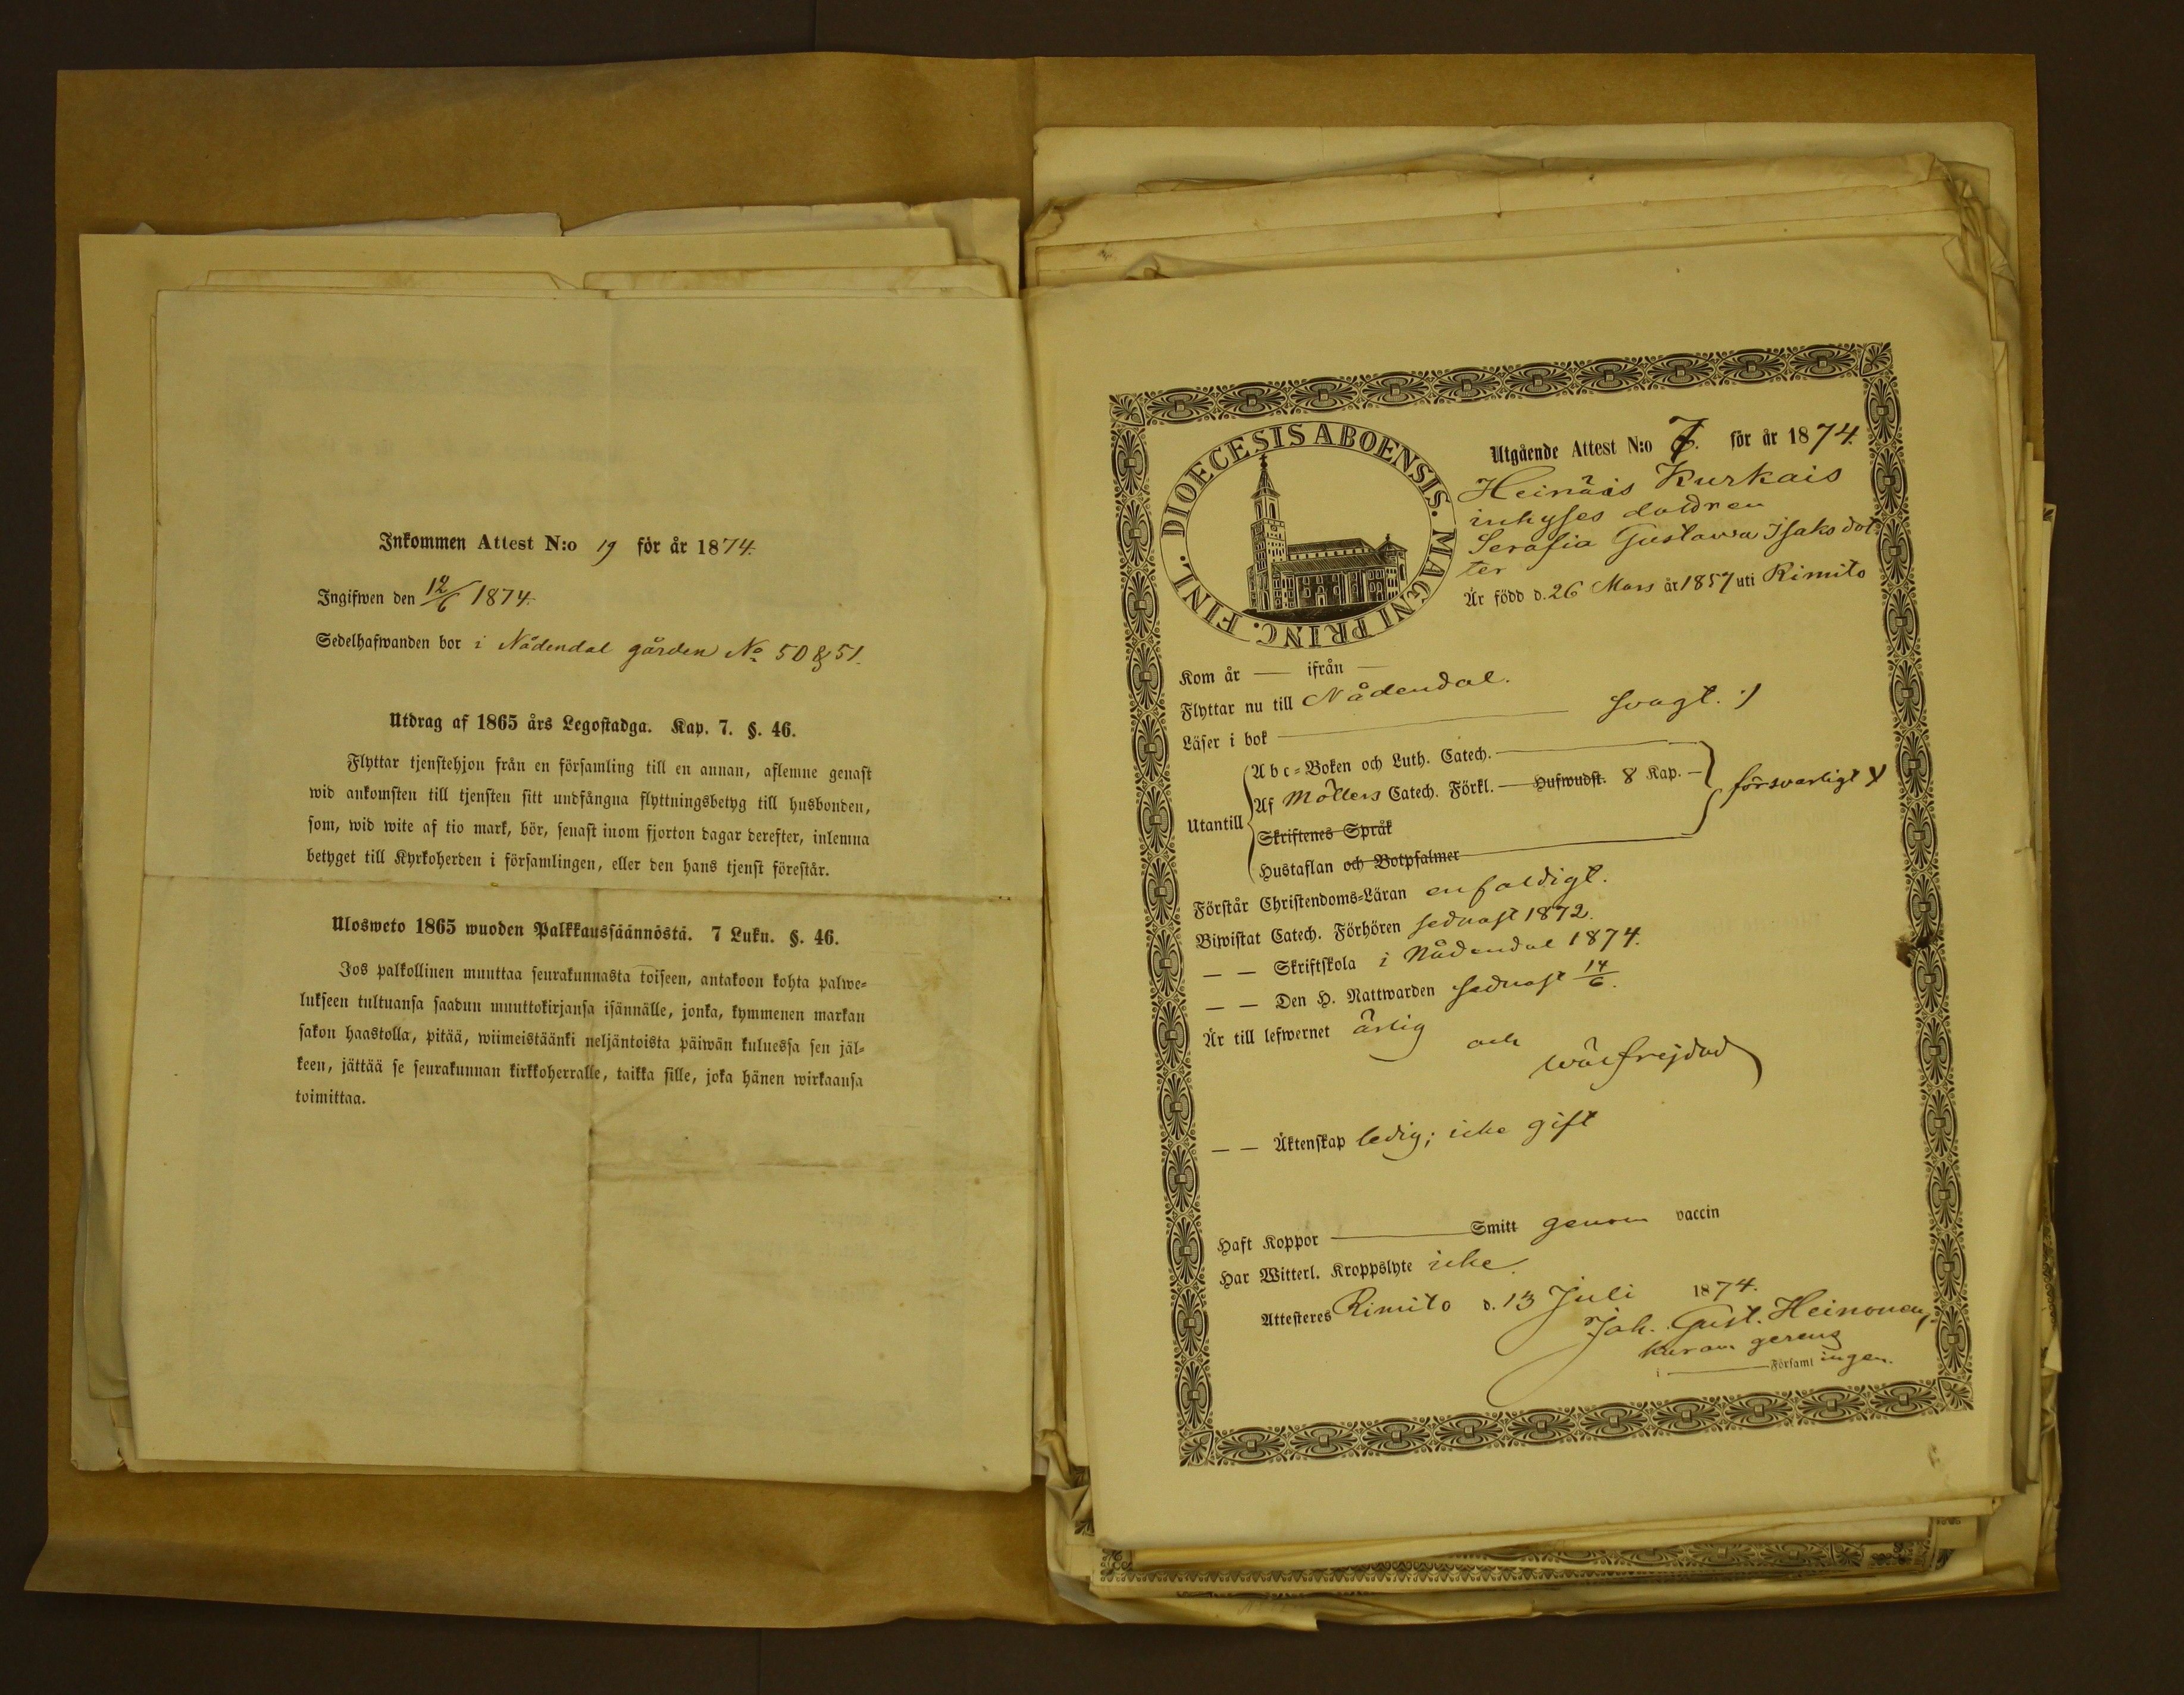 Inkommen Attest N:o 19 för år 1874.
Ingifwen den 12/6 1874.
Sedelhafwanden bor i Nådendal gården No 50 & 51.
Utdrag af 1865 års Legostadga. Kap. 7. §. 46.
Flyttar tjenstehjon från en församling till en annan, aflemne genast
wid ankomsten till tjensten sitt undfångna flyttningsbetyg till husbonden,
som, wid wite af tio mark, bör, senast inom fjorton dagar derefter, inlemna
betyget till Kyrkoherden i församlingen, eller den hans tjenst förestår.
Ulosweto 1865 wuoden Palkkaussäännöstä. 7 Luku. §. 46.
Jos palkollinen muuttaa seurakunnasta toiseen, antakoon kohta palwe=
lukseen tultuansa saadun muuttokirjansa isännälle, jonka, kymmenen markan
sakon haastolla, pitää, wiimeistäänki neljäntoista päiwän kuluessa sen jäl=
keen, jättää se seurakunnan kirkkoherralle, taikka sille, joka hänen wirkaansa
toimittaa.
DIOECESIS ABOENSIS. MAGNI PRINC. FINL.
Utgående Attest N:o 7. för år 1874.
Heinäis Kurkais
inhyses
Serafia Gustawa Isaksdot
ter
Är född d. 26 Mars år 1857 uti Rimito
Kom år — ifrån —
Flyttar nu till Nådendal.
Läser i bok — svagt. :/
Utantill
Abc=Boken och Luth. Catech. —
Af Möllers Catech. Förkl. — Hufwudst. 8 Kap. — försvarligt
Skriftenes Språk
Hustaflan och Botpsalmer
Förstår Christendoms=Läran enfaldigt.
Biwistat Catech. Förhören sednast 1872.
— — Skriftskola i Nådendal 1874.
— — Den H. Nattwarden sednast 14/6.
Är till lefwernet ärlig och
wälfrejdad
— — Äktenskap ledig; icke gift
Haft Koppor — Smitt genom vaccin
Har Witterl. Kroppslyte icke.
Attesteres Rimito d. 13 Juli 1874.
Joh. Gust. Heinonen,
kuram gerens
i — Församlingen.